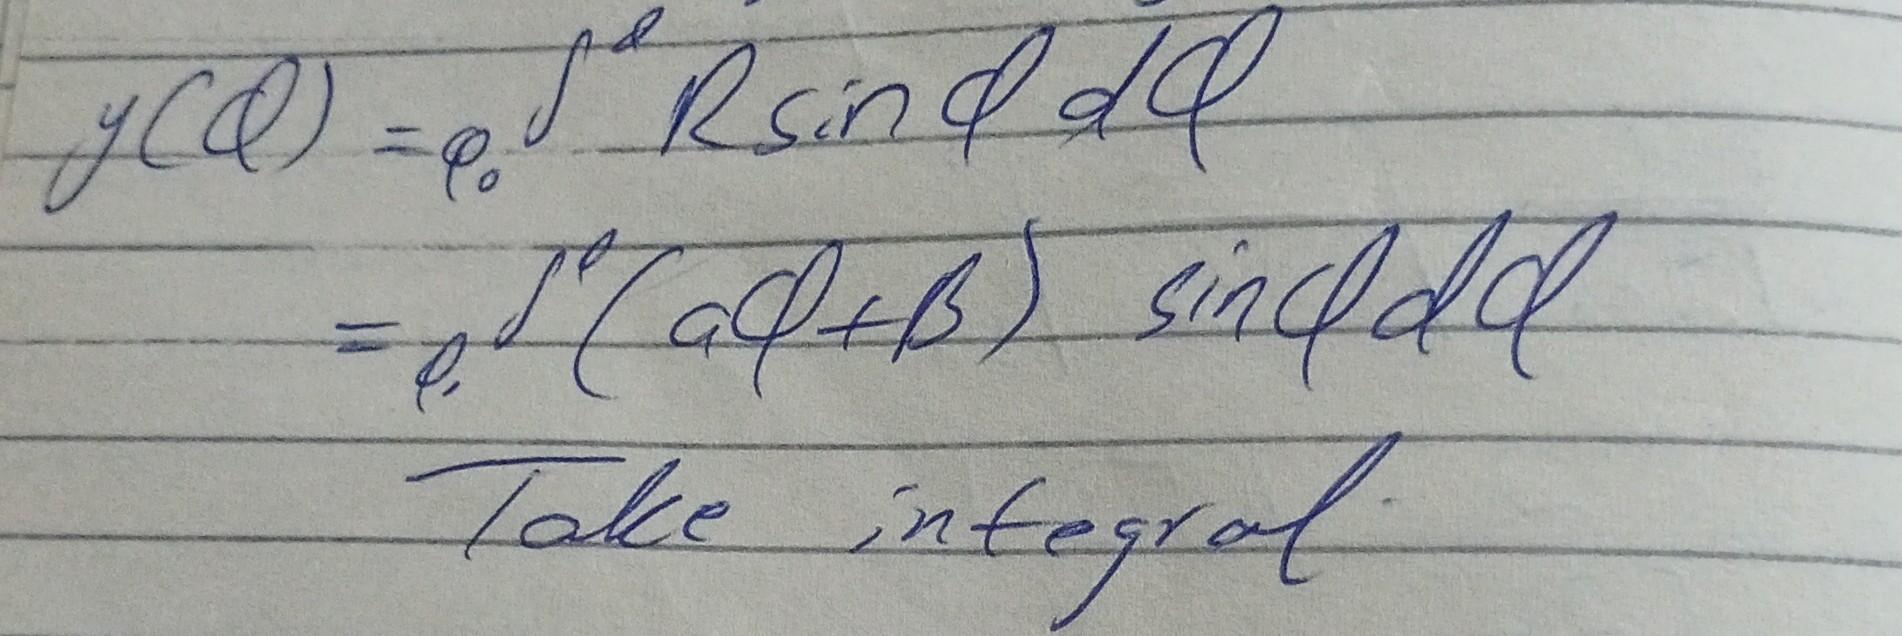 y(φ) = φ₀∫^φ R sin φ dφ
= φ₀∫^φ (aφ+B) sin φ dφ
Take integral